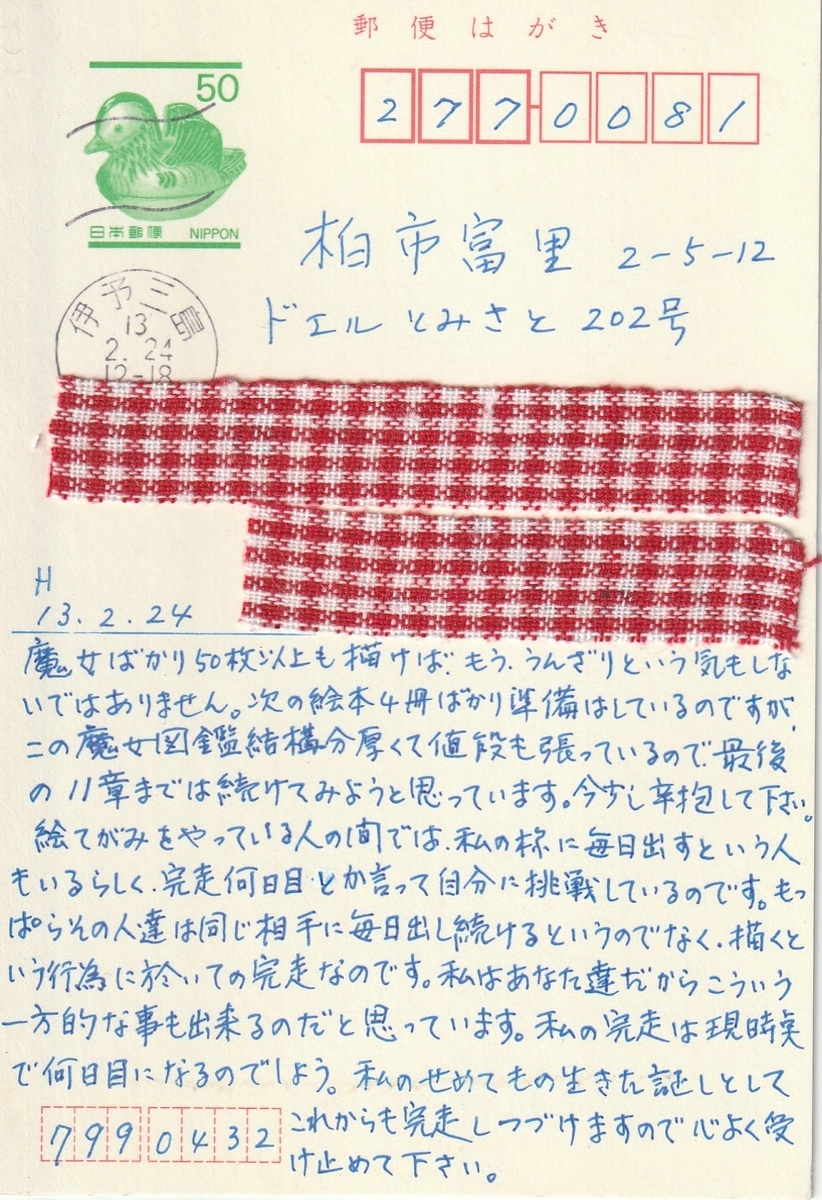 郵便はがき
50
日本郵便 NIPPON
277-0081
柏市富里 2-5-12
ドエルとみさと 202号
伊予三島
13
2. 24
12-18
H
13.2.24
魔女ばかり50枚以上も描けば、もう、うんざりという気もしな
いではありません。次の絵本4冊ばかり準備はしているのですが、
この魔女図鑑結構分厚くて値段も張っているので、最後
の11章までは続けてみようと思っています。今少し辛抱して下さい。
絵てがみをやっている人の間では、私の様に毎日出すという人
もいるらしく、完走何日目とか言って自分に挑戦しているのです。もっ
ぱらその人達は同じ相手に毎日出し続けるというのでなく、描くと
いう行為に於いての完走なのです。私はあなた達だからこういう
一方的な事も出来るのだと思っています。私の完走は現時点
で何日目になるのでしょう。私のせめてもの生きた証しとして
これからも完走しつづけますので心よく受
け止めて下さい。
7990432